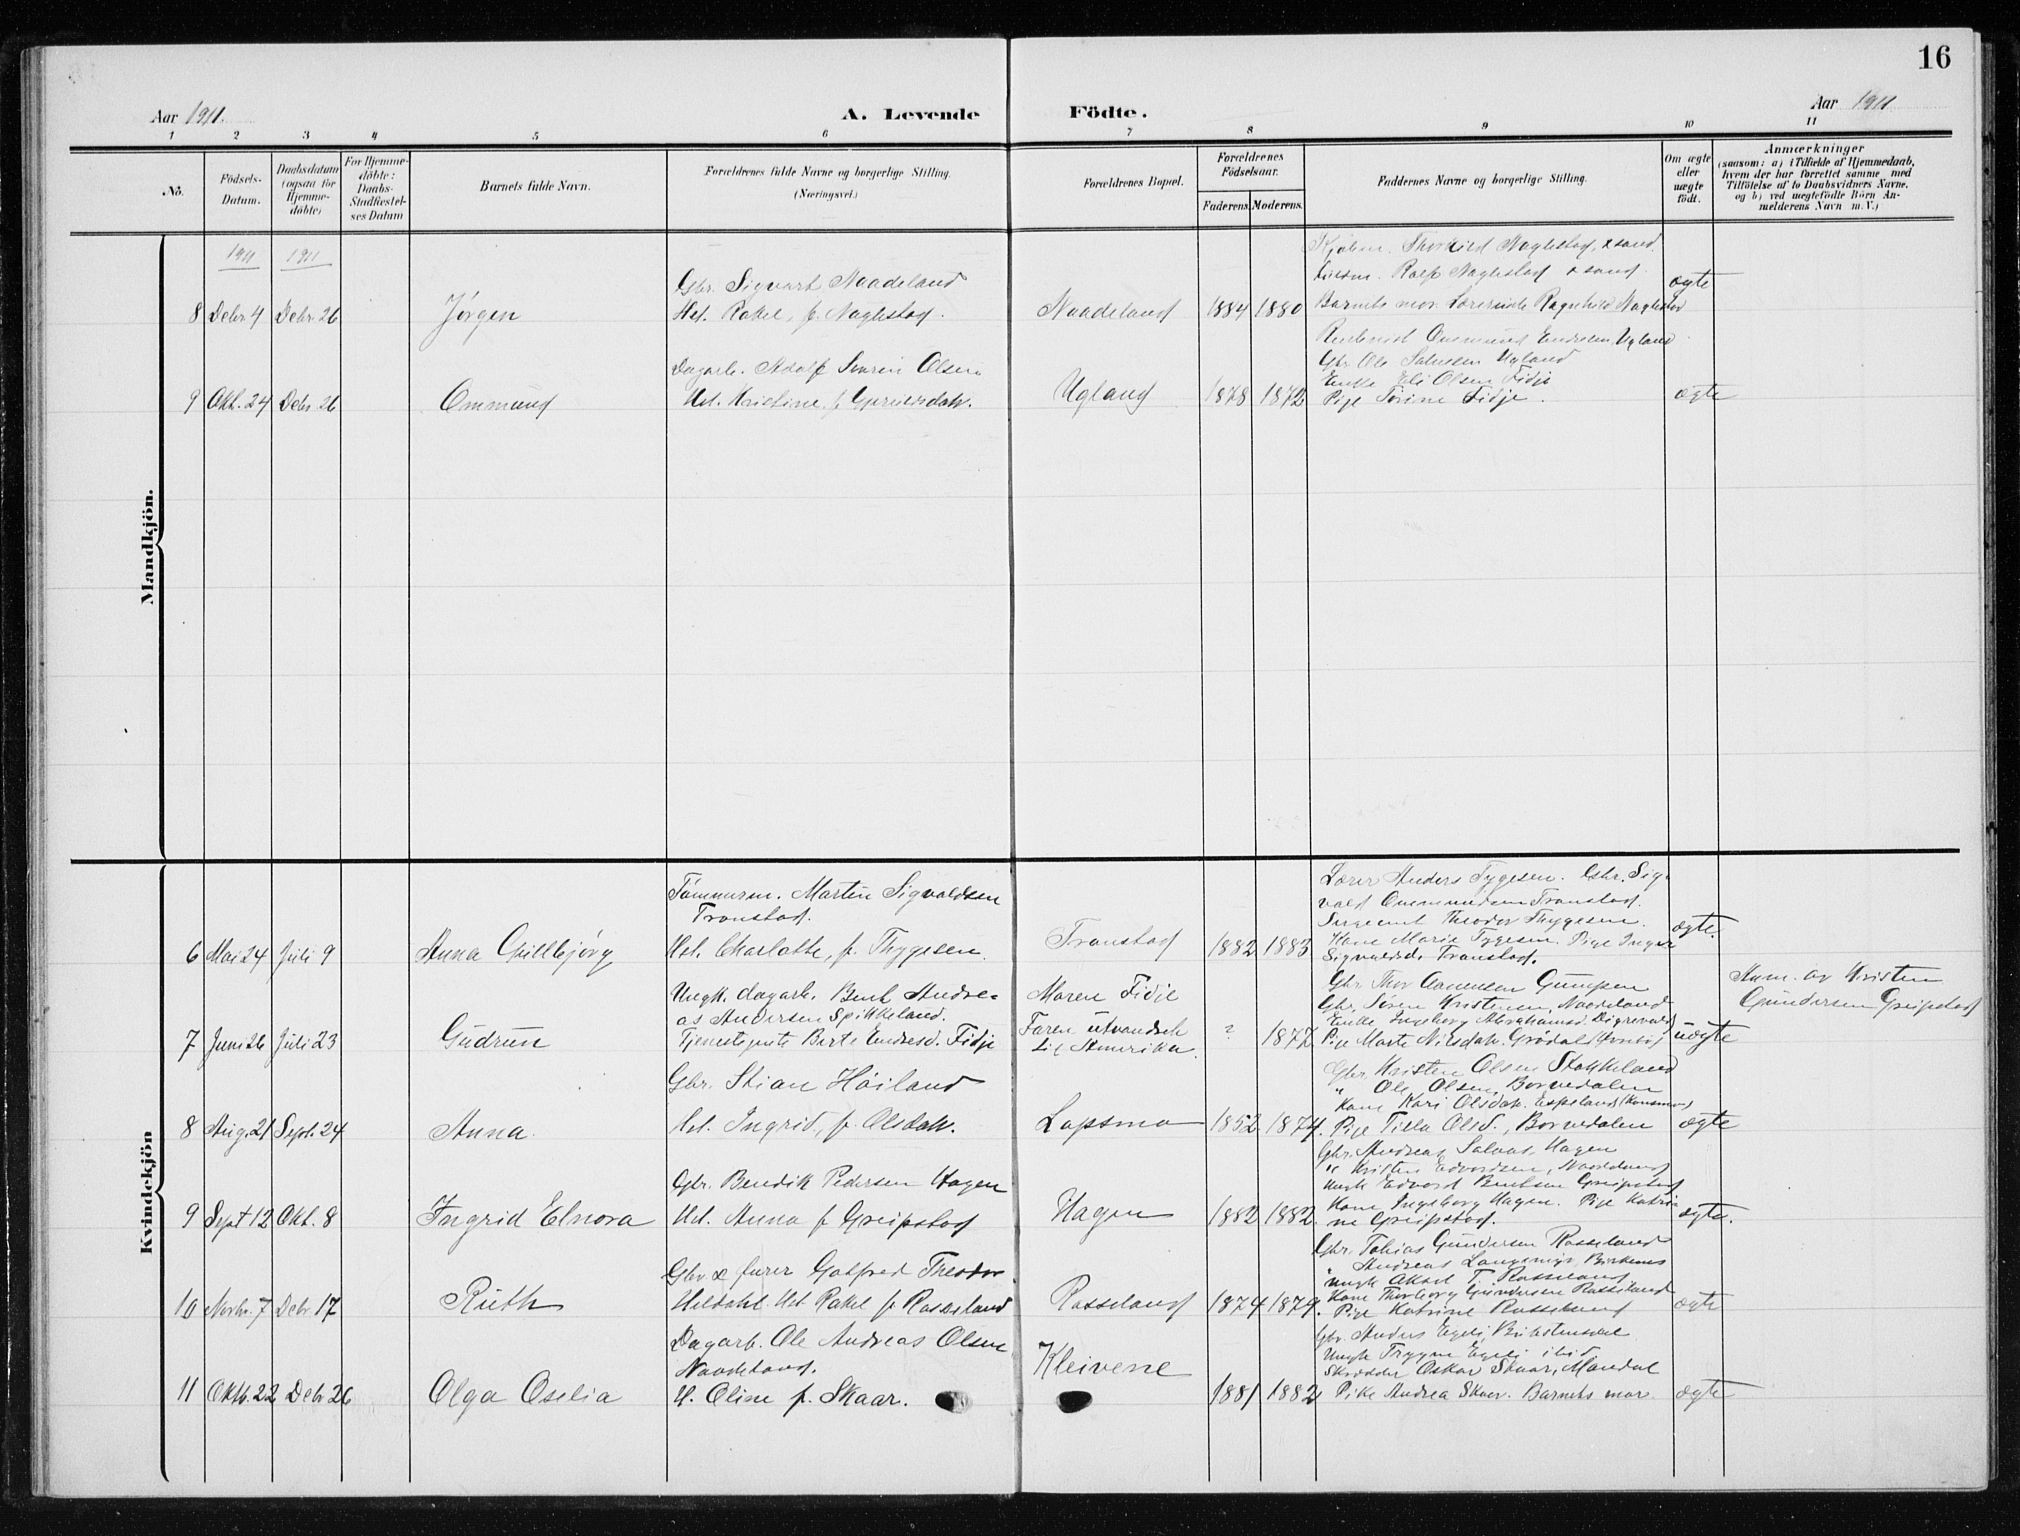 16
Aar 1911.
A. Levende
Födte.
Aar 1911
1 2 3 4 5 6 7 8 9 10 11
No.
Födsels-
Datum.
Daabsdatum
(ogsaa for
Hjemme-
döbte)
For Hjemme-
döbte:
Daabs-
Stadfæstel-
ses Datum
Barnets fulde Navn.
Forældrenes fulde Navne og borgerlige Stilling.
(Næringsvei.)
Forældrenes Bopæl.
Forældrenes
Födselsaar.
Faderens. Moderens.
Faddernes Navne og borgerlige Stilling.
Om ægte
eller
uægte
födt.
Anmærkninger
(saasom: a) i Tilfælde af Hjemmedaab,
hvem der har forrettet samme, med
Tilföielse af to Daabsvidners Navne,
og b) ved uægtefödte Börn An-
melderens Navn m. V.)
Mandkjön.
1911 1911
8 Debr. 4 Debr. 26
Jörgen
Gbr. Sigvart Naadeland
Het. Rakel, f. Naglestad.
Naadeland
1884 1880
Kjöbm. Thorkild Naglestad, x sand.
Rolf Naglestad x sand.
Barnets mor. Lærerinde Ragnhild Naglestad
ægte
9 Okt. 24 Debr. 26
Ommund
Dagarb. Adolf Severin Olsen
Het. Kristine f.
Ugland
1878 1872
Ommund Endresen, Ugland
Gbr. Ole Salvesen Ugland
Enke Eli Olsen, Fidje
Pige Törine Fidje.
ægte
Kvindekjön
6 Mai 24 Juli 9
Anna Gullbjörg
Tömmerm. Martin Sigvaldsen
Tronstad.
Het. Charlotte, f. Thygesen.
Tronstad
1882 1883
Lærer Anders Tygesen. Gbr. Sig-
vald Ommundsen Tronstad.
Sergeant Theodor Thygesen.
Kone Marie Tygesen. Pige Inger
Sigvaldsd. Tronstad.
ægte.
7 Juni 26 Juli 23
Gudrun
Ungk. dagarb. Bent Andre-
as Andersen Spikkeland.
Tjenestepike Berte Endresd. Fidje
Moren Fidje
Faren utvandret
til Amerika.
? 1877
Gbr. Thor Aanensen Gumpen
Gbr. Sören Kristensen, Naadeland
Enke Ingeborg Abrahamsd.
Pige Marte Nilsdatr. Grödal
uægte
Anm. av Kristen
Gundersen Greipstad
8 Aug. 21 Sept. 24
Anna.
Gbr. Stian Höiland
Het. Ingrid, f. Olsdatr.
Lopsmo
1852 1874.
Gbr. Kristen Olsen Stokkeland
" Ole Olsen, Borvedalen
Kone Kari Olsdatr. Espeland (Konsmo)
Pige Tilla Olsd., Borvedalen
ægte
9 Sept 12 Okt. 8
Ingrid Elnora
Gbr. Bendik Pedersen Hagen
Het. Anna f Greipstad
Hagen
1882 1882.
Gbr. Andreas Salves. Hagen
" Kristen Edvardsen, Naadeland
Ungk Edvard Bentsen Greipstad
Kone Ingeborg Hagen. Pige Katri-
ne Greipstad.
ægte.
10 Novbr. 7 Debr. 17
Ruth
Gbr & furer Gotfred Theodor
Meldahl. Het Rakel f. Rosseland
Rosseland
1874 1879.
Gbr. Tobias Gundersen Rosseland
" Andreas Langemyr, Birkenes
Ungk Aksel T. Rosseland
Kone Thorborg Gundersen Rosseland
Pige Katrine Rosseland
ægte
11 Oktb. 22 Debr 26
Olga Oselia
Dagarb. Ole Andreas Olsen
Naadeland.
H. Oline f. Skaar.
Kleivene
1881 1882
Gbr. Anders Egeli,
Ungk Trygve Egeli ibid
Skrædder Oskar Skaar, Mandal
Pike Andrea Skaar. Barnets mor.
ægte